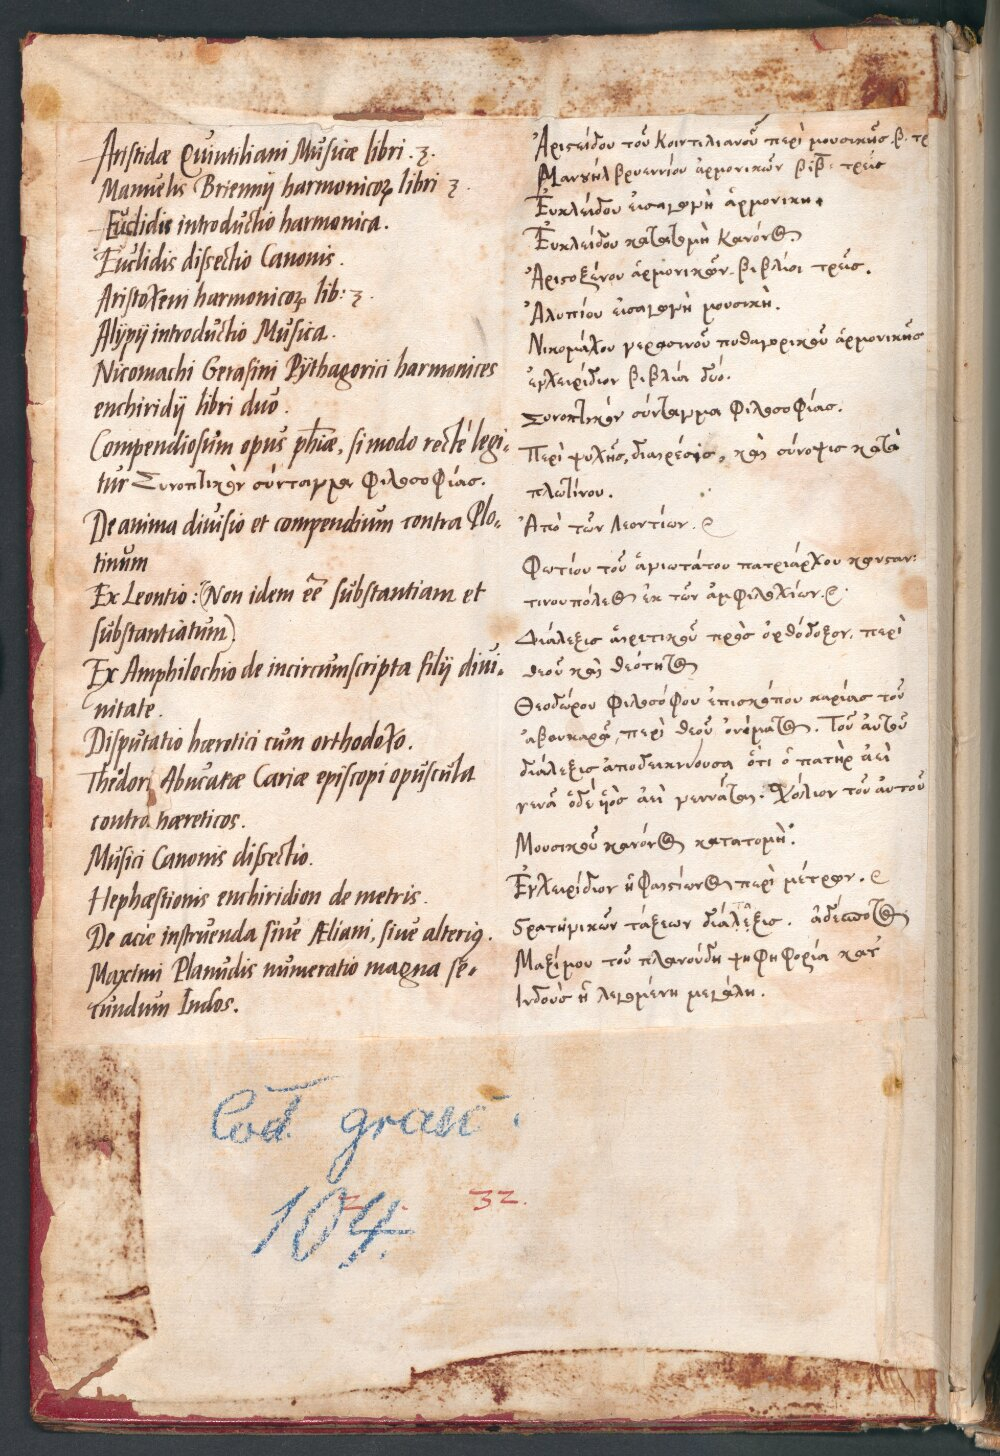 Aristidæ Quintiliani Musicæ libri .3.
Manuelis Briennij harmonicoꝝ libri 3.
Euclidis introductio harmonica.
Euclidis dissectio Canonis.
Aristoxeni harmonicoꝝ lib: 3.
Alypij introductio Musica.
Nicomachi Gerasini Pythagorici harmonices
enchiridij libri duo.
Compendiosum opus phiæ, si modo recté legi-
tur Συνοπτικὸν σύνταγμα Φιλοσοφίας.
De anima divisio et compendium contra Plo-
tinum
Ex Leontio: (Non idem eē substantiam et
substantiatum)
Ex Amphilochio de incircumscripta filij divi-
nitate.
Disputatio hæretici cum orthodoxo.
Theodori Abucaræ Cariæ episcopi opuscula
contra hæreticos.
Musici Canonis dissectio.
Hephæstionis enchiridion de metris.
De acie instruenda sive Æliani, sive alterius.
Maximi Planudis numeratio magna se-
cundum Indos.
Ἀριστείδου τοῦ Κοιντιλιανοῦ περὶ μουσικῆς β. τρ
Μανουὴλ Βρυεννίου ἁρμονικῶν βιβ. τρεῖς
Εὐκλείδου εἰσαγωγὴ ἁρμονική.
Εὐκλείδου κατατομὴ κανόνος
Ἀριστοξένου ἁρμονικῶν βιβλίοι τρεῖς.
Ἀλυπίου εἰσαγωγὴ μουσική.
Νικομάχου γερασινοῦ πυθαγορικοῦ ἁρμονικῆς
ἐγχειρίδιον βιβλία δύο.
Συνοπτικὸν σύνταγμα Φιλοσοφίας.
Περὶ ψυχῆς, διαιρέσις, καὶ σύνοψις κατὰ
πλωτίνου.
Ἀπὸ τῶν Λεοντίων.
Φωτίου τοῦ ἁγιωτάτου πατριάρχου κωνσταν:
τινουπόλεως ἐκ τῶν ἀμφιλοχίων.
Διάλεξις αἱρετικοῦ πρὸς ὀρθόδοξον, περὶ
θεοῦ καὶ θεότητος
Θεοδώρου Φιλοσόφου ἐπισκόπου καρίας τοῦ
ἀβουκαρᾶ, περὶ θεοῦ ὀνόματος. Τοῦ αὐτοῦ
διάλεξις ἀποδεικνύουσα ὅτι ὁ πατὴρ ἀεὶ
γεννᾷ ὁ δὲ υἱὸς ἀεὶ γεννᾶται. Σχόλιον τοῦ αὐτοῦ
Μουσικοῦ κανόνος κατατομή.
Ἐγχειρίδιον ἡφαιστίωνος περὶ μέτρων.
Στρατηγικῶν τάξεων διάλεξις. ἀδέσποτος
Μαξίμου τοῦ πλανούδη ψηφηφορία κατ'
Ἰνδοὺς ἡ λεγομένη μεγάλη.
Cod. graec.
104.
32.